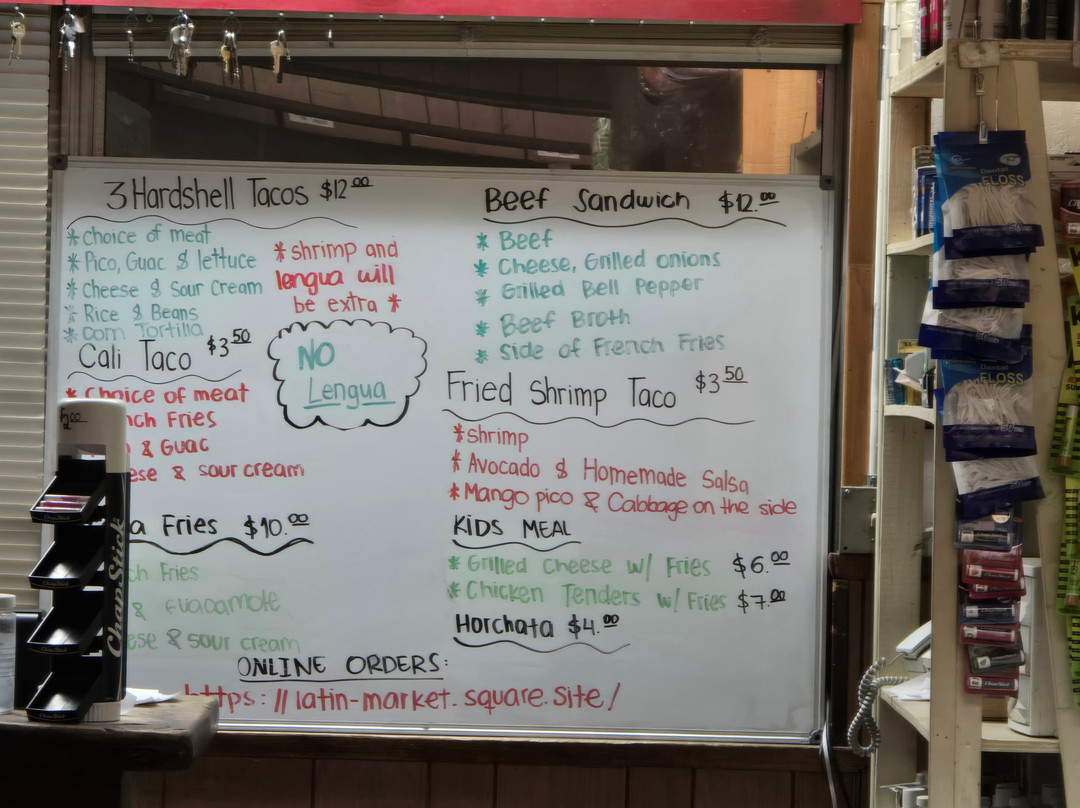 3 Hardshell Tacos $12.00
* Choice of meat
* Pico, Guac & lettuce
* Cheese & Sour Cream
* Rice & Beans
* Corn Tortilla
* shrimp and
lengua will
be extra *
Cali Taco $3.50
NO
Lengua
* Choice of meat
nch Fries
& Guac
ese & sour cream
a Fries $10.00
ch Fries
& Guacamole
ese & sour cream
Beef Sandwich $12.00
* Beef
* Cheese, Grilled onions
* Grilled Bell Pepper
* Beef Broth
* Side of French Fries
Fried Shrimp Taco $3.50
* shrimp
* Avocado & Homemade Salsa
* Mango pico & Cabbage on the side
KiDS MEAL
* Grilled Cheese w/ Fries $6.00
* Chicken Tenders w/ Fries $7.00
Horchata $4.00
ONLINE ORDERS:
https://latin-market.square.site/
ChapStick
Dental
FLOSS
FLOSS